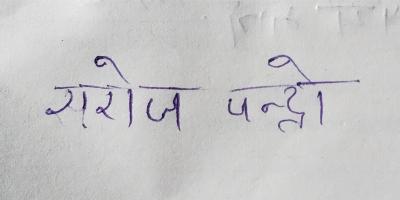 सरोज पन्द्रो